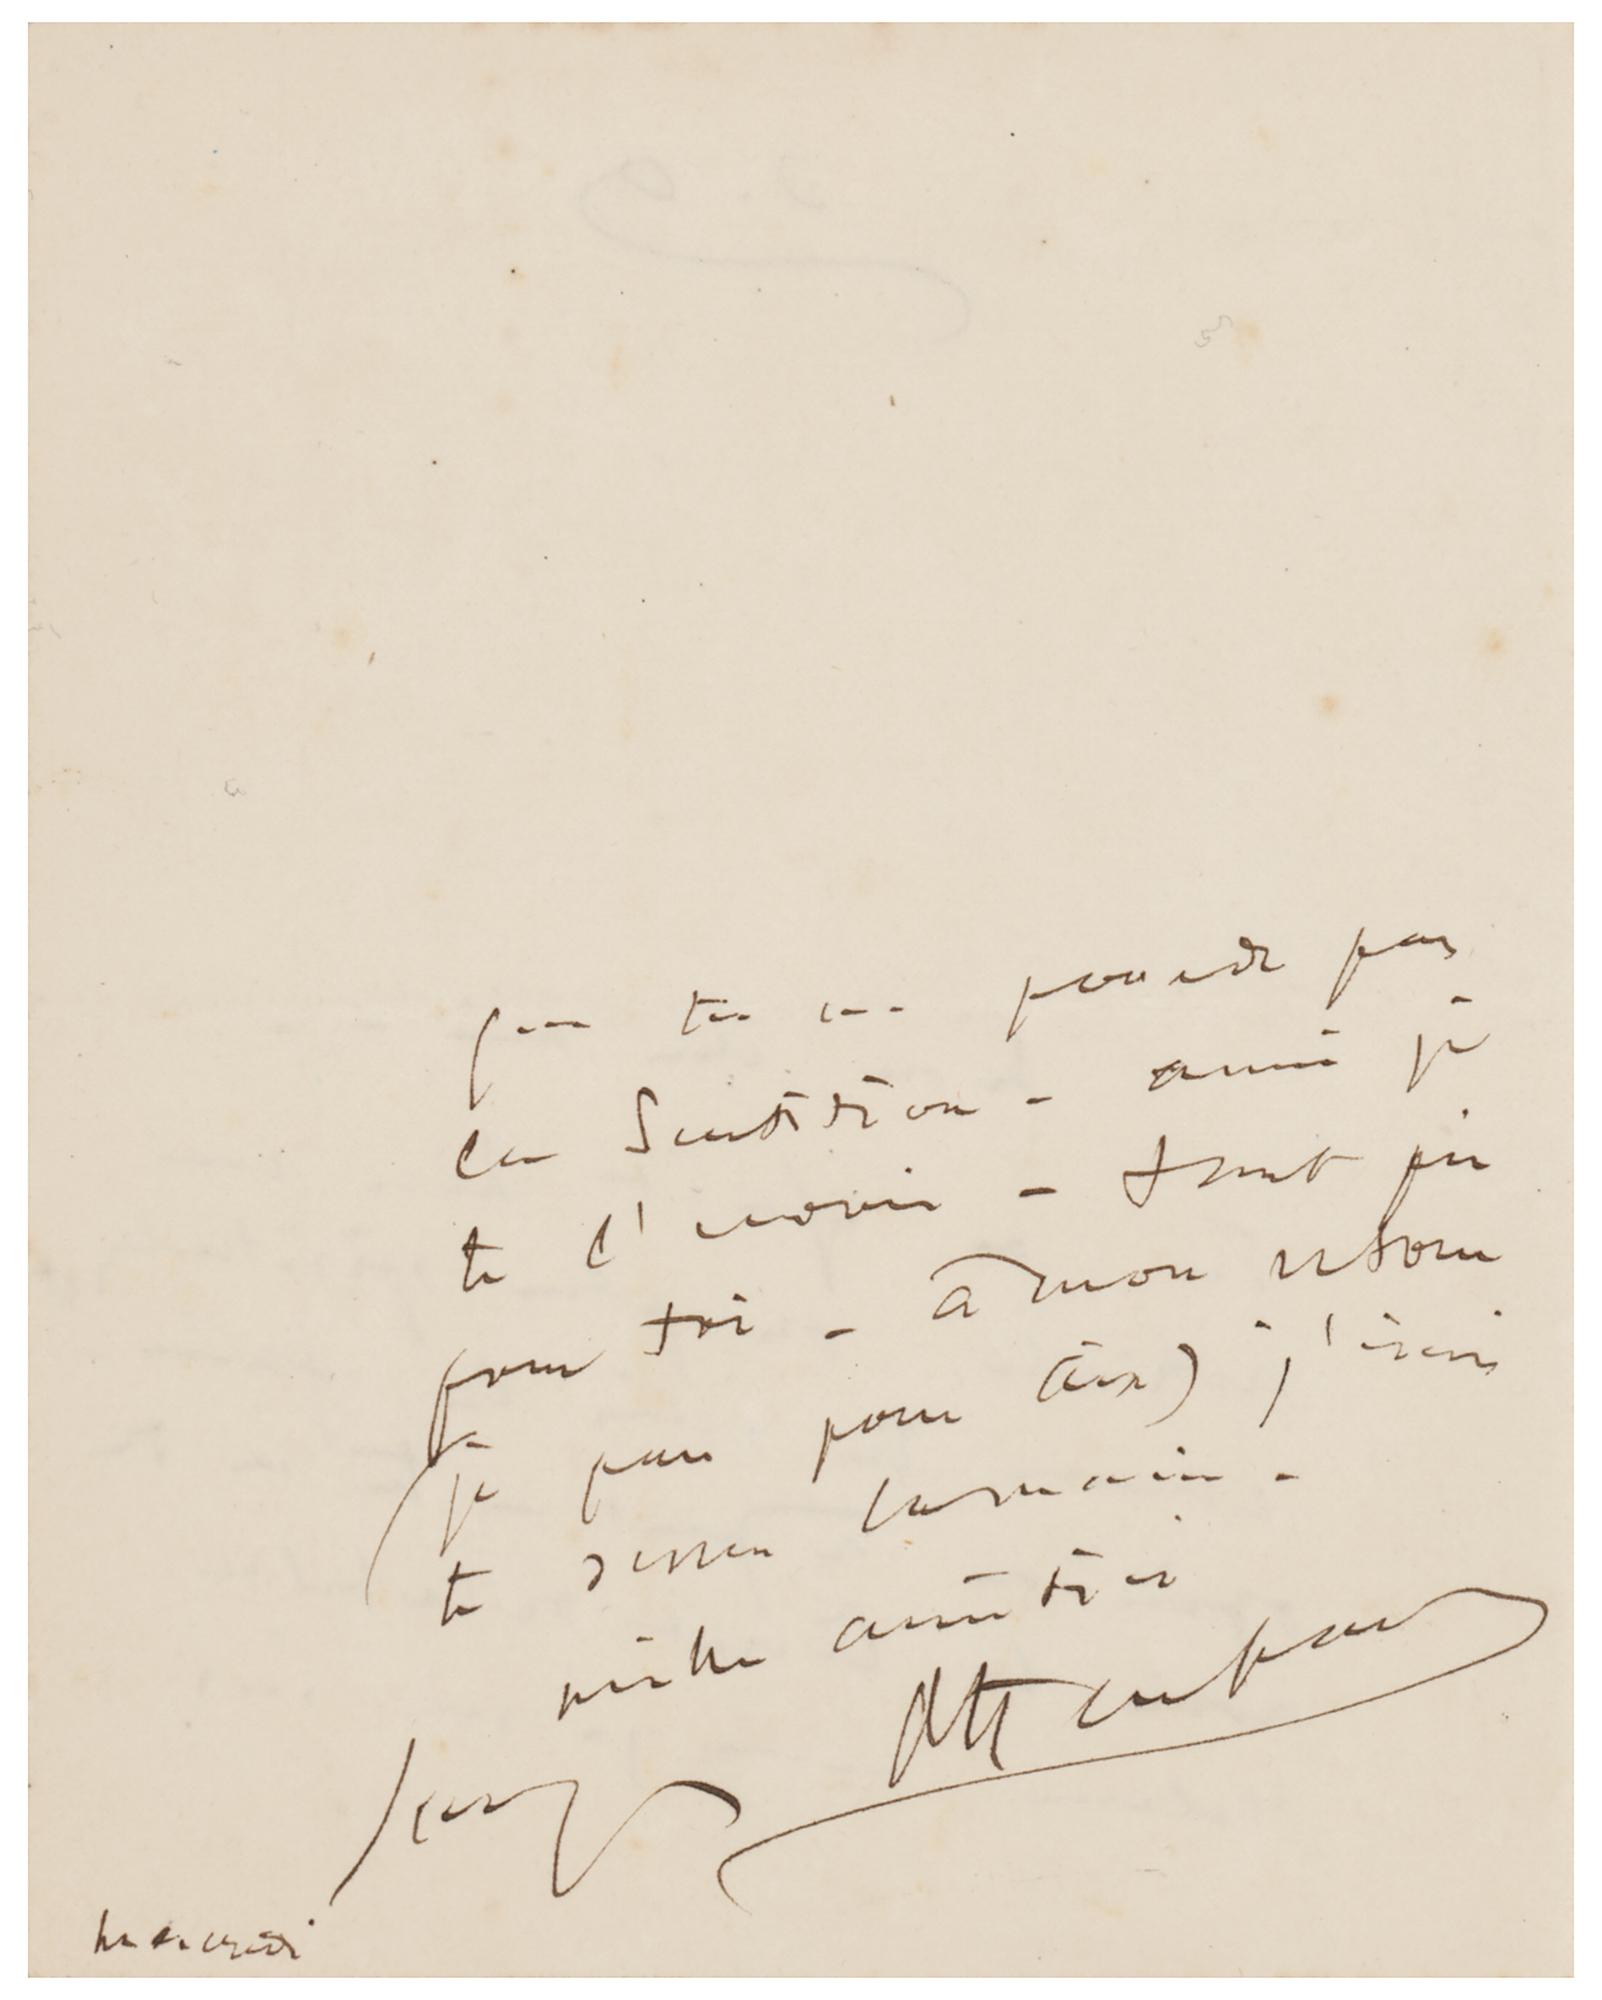 que tu ne possède pas
la Tentation - aussi je
te l'envoie - tant pis
pour toi - à mon retour
(je pars pour Aix) j'irai
te serrer la main -
mille amitiés
mercredi